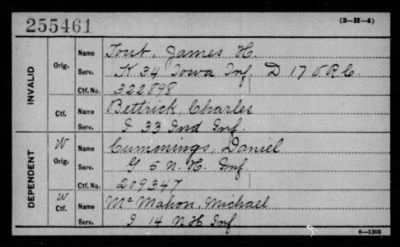 255461
(3—H—4)
INVALID
Orig.
Name Tout, James H.
Serv. K 34 Iowa Inf. D 17 V.R.C
Ctf. No. 322898
Ctf.
Name Bettrick, Charles
Serv. I 33 Ind Inf.
DEPENDENT
W
Orig.
Name Cummings, Daniel
Serv. G 5 N. H. Inf
Ctf. No. 209347
W
Ctf.
Name McMahon, Michael
Serv. I 14 N H Inf
6—1203